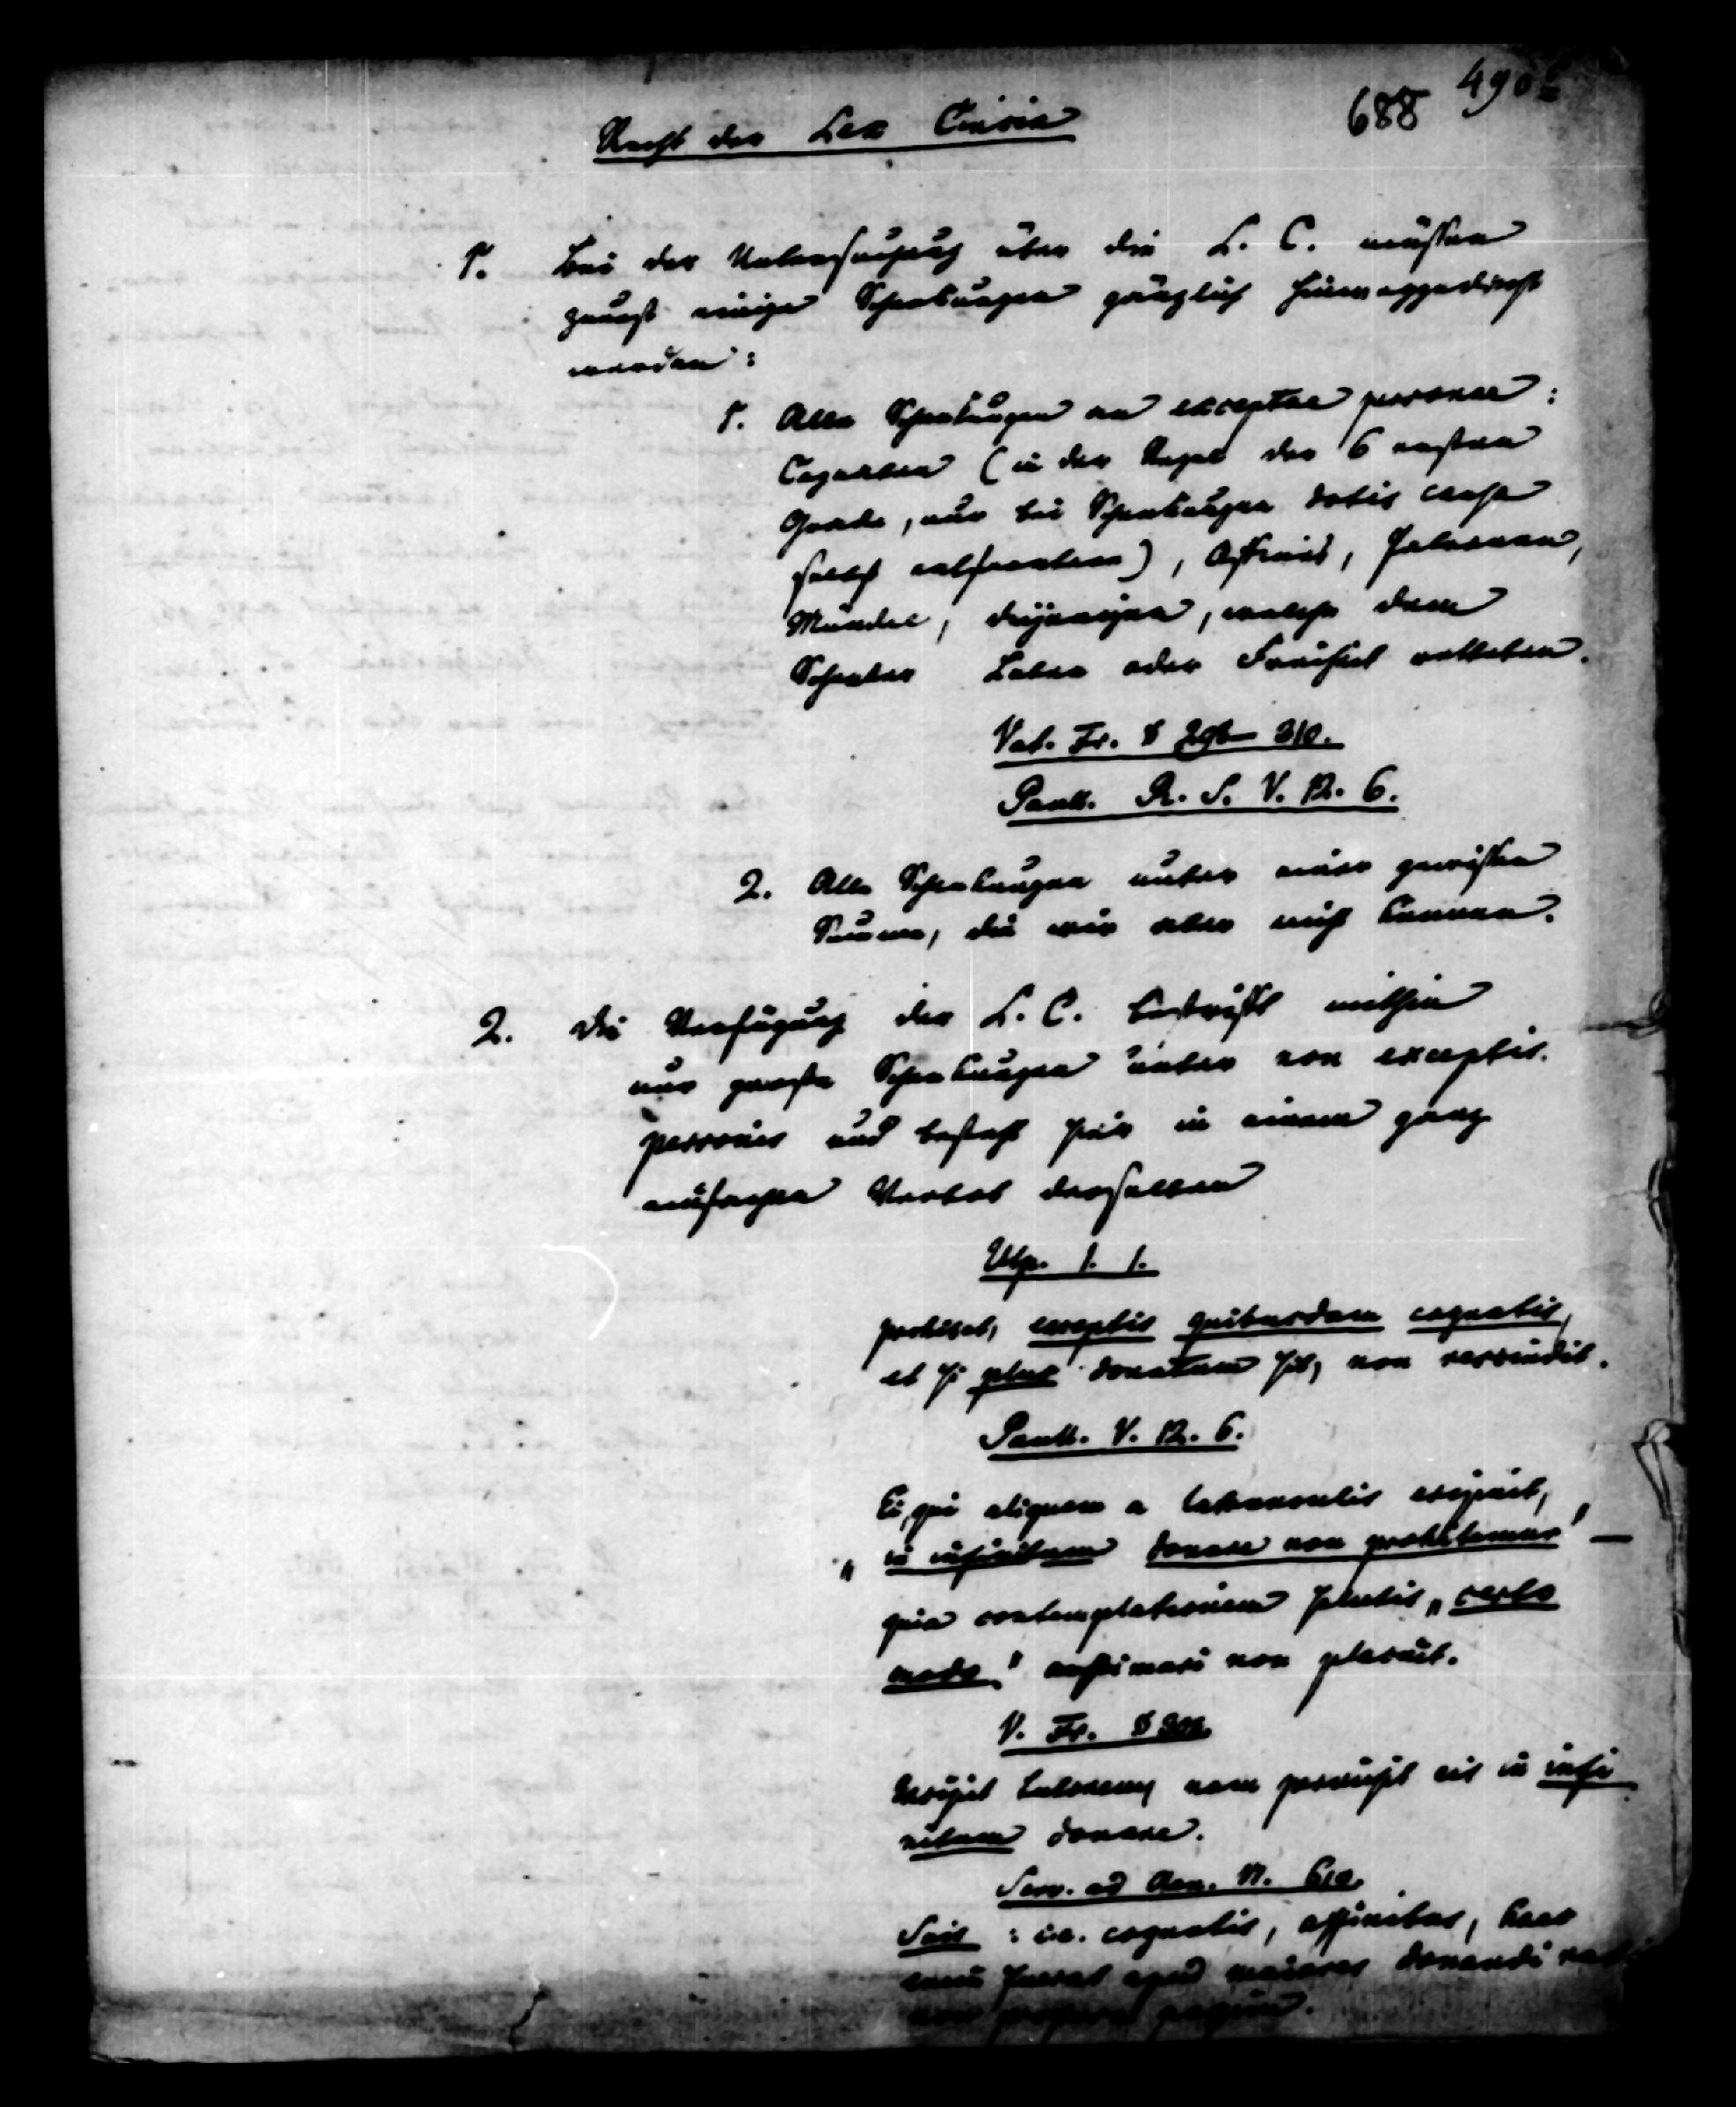 688 490
Recht der Lex Cincia
1. Bei der Untersuchung über die L. C. müssen
zuerst einige Schenkungen gänzlich hinweggedacht
werden:
1. Alle Schenkungen an exceptae personae:
Cognaten (in der Regel der 6 ersten
Grade, nur bei Schenkungen dotis causa
selbst entfernteren), Affinis, Patronen,
Mündel, diejenigen, welche dem
Schenker Leben oder Freiheit retteten.
Vat. Fr. § 298–310.
Paull. R. S. V. 12. 6.
2. Alle Schenkungen unter einer gewissen
Summe, die wir aber nicht kennen.
2. Die Verfügung der L. C. betrifft mithin
nur große Schenkungen unter non exceptis
personis und besteht hier in einem ganz
einfachen Verbot derselben
Ulp. 1. 1.
prohibet, exceptis quibusdam cognatis,
et si plus donatum sit, non rescindit.
Paull. V. 12. 6.
Ei, qui aliquem a latrunculis eripuit,
„in infinitum donare non prohibemur" —
quia contemplationem salutis „certo
modo" aestimari non placuit.
V. Fr. § 304.
Excipit tutorem, nam permisit eis in infi
nitum donare.
Serv. ad Aen. VI. 610.
Suis : i.e. cognatis, affinibus, haec
enim fuerat apud maiores donandi